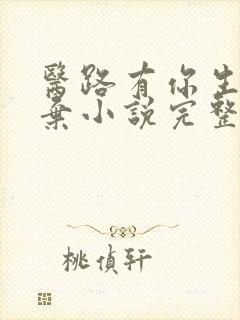 醫路有你生
棄小說完整
桃偵軒